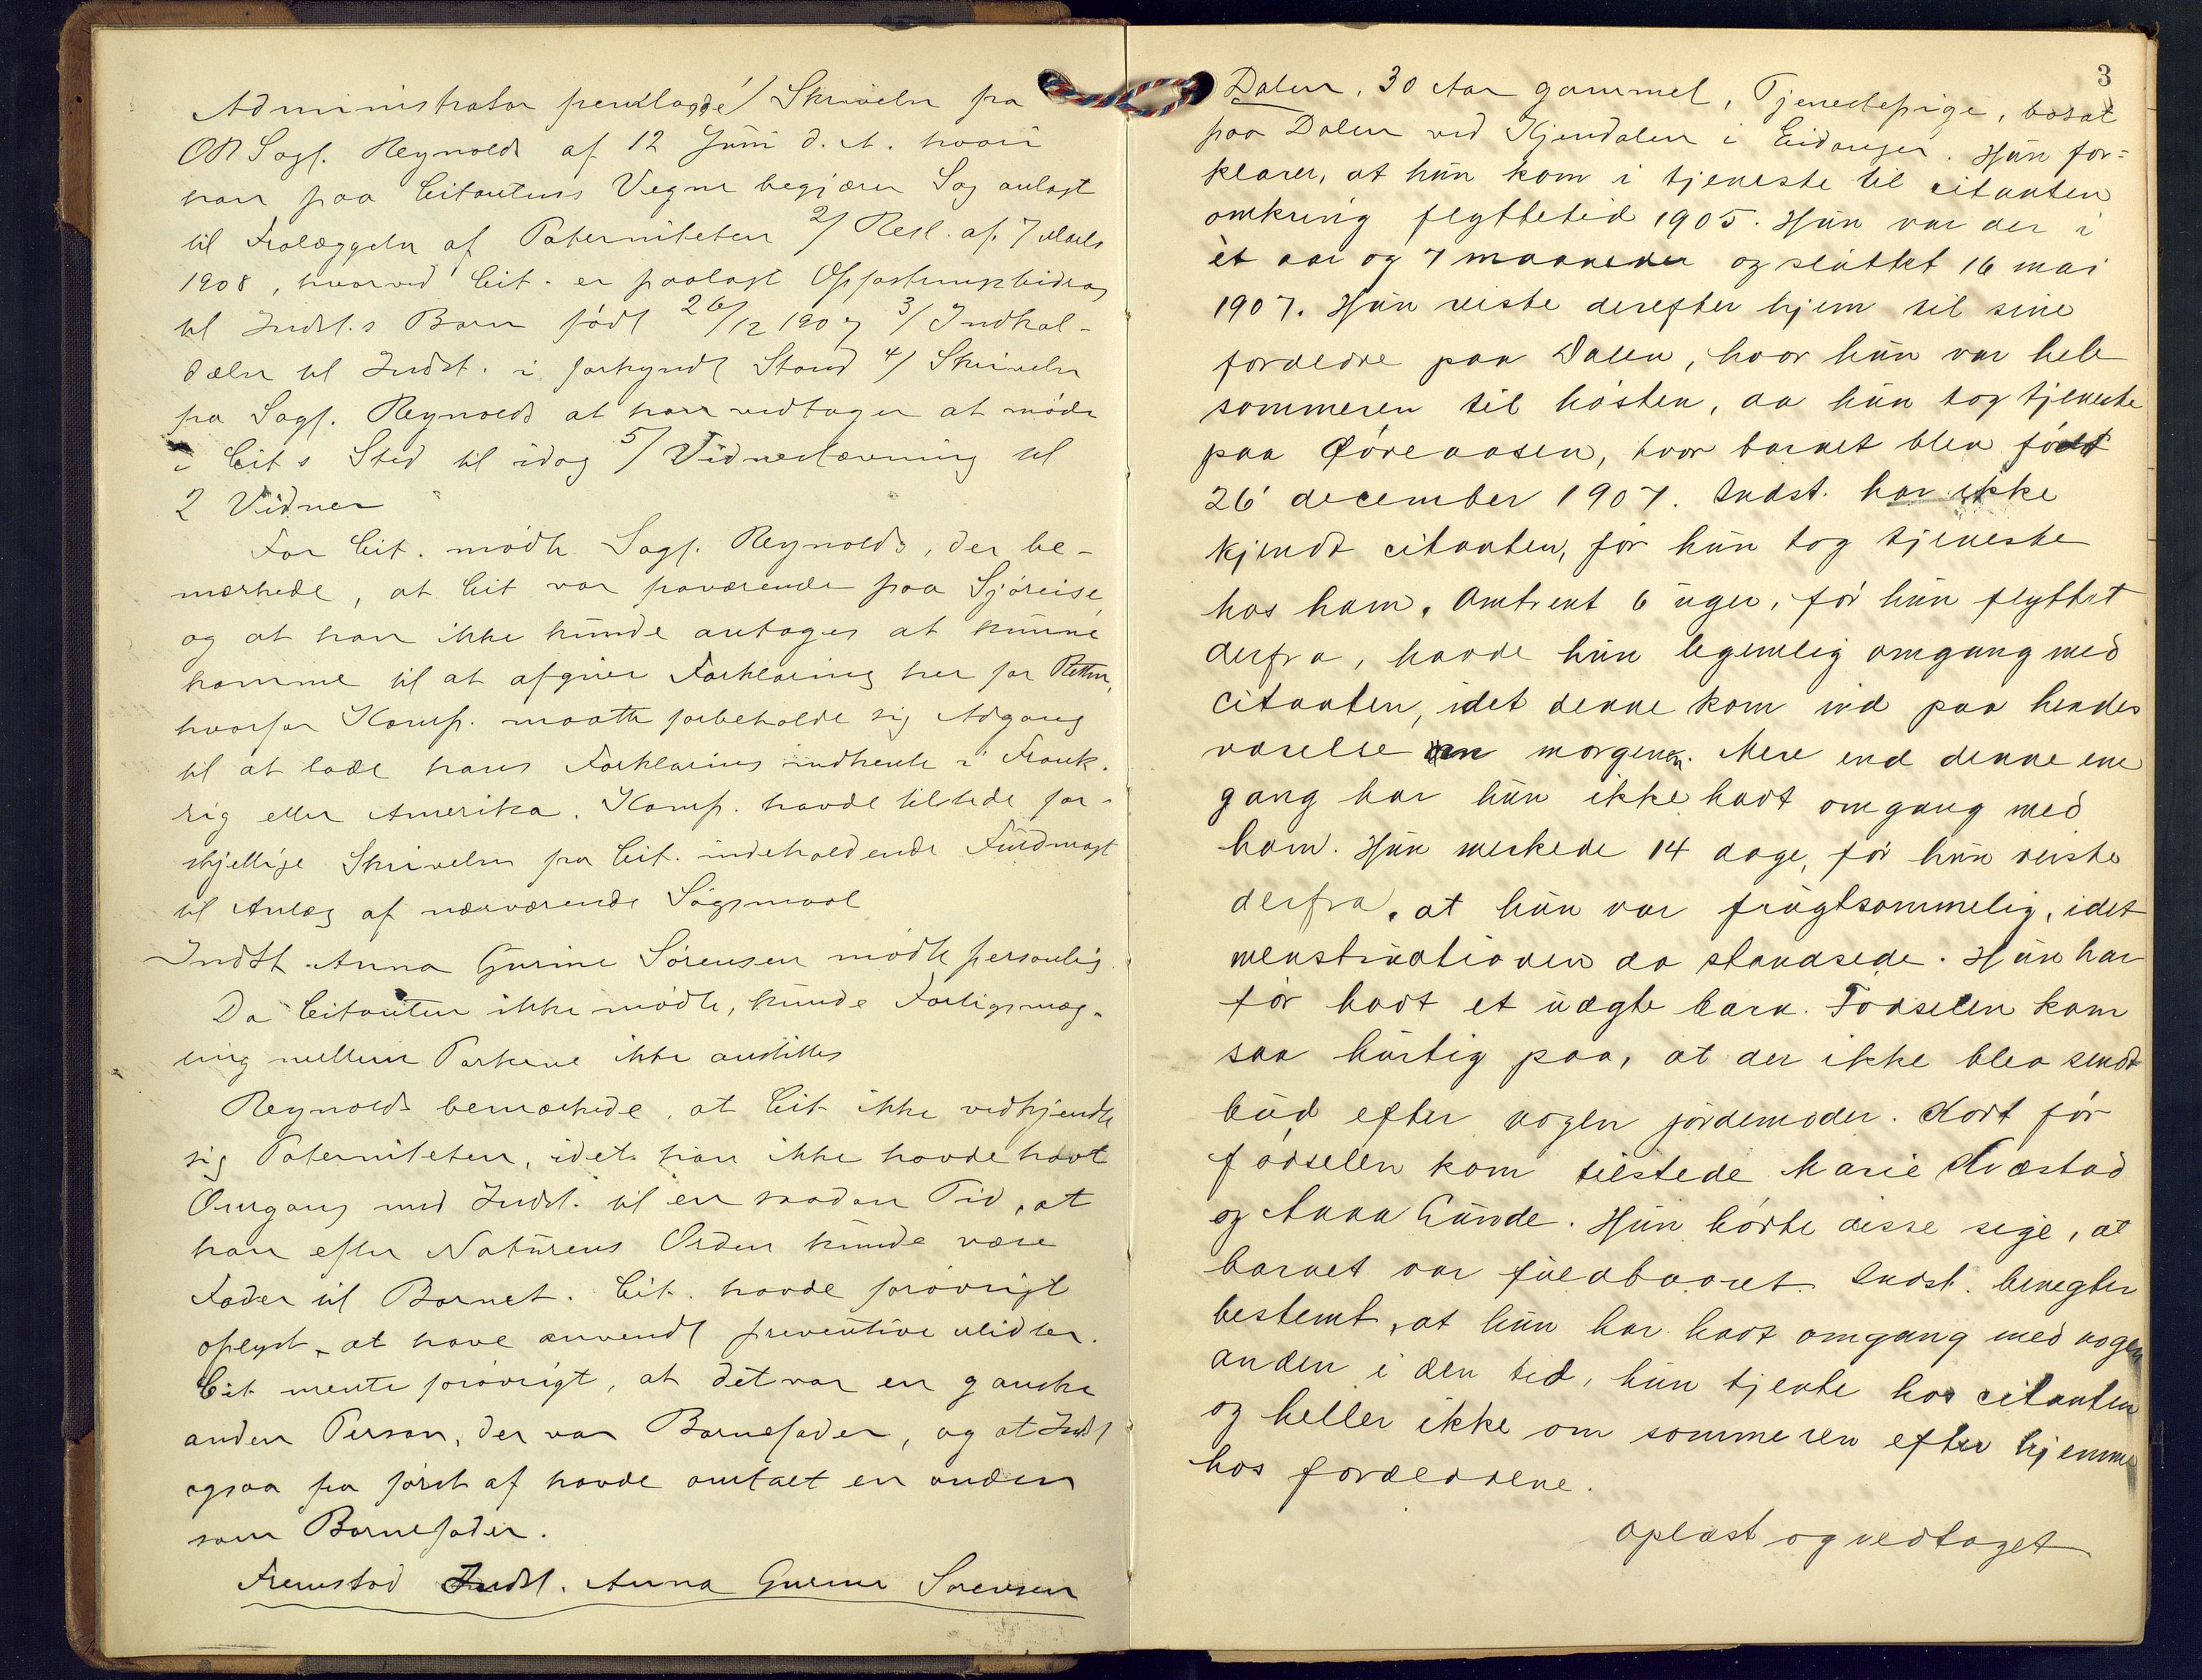 Administrator fremlagde 1/ Skrivelse fra
OR Sagf. Reynolds af 12 Juni d. A. hvori
han paa Citantens Vegne begjærer Sag anlagt
til Fralæggelse af Paterniteten 2/ Resl. af 7 Marts
1908, hvorved Cit. er paalagt Opfostringsbidrag
til Indst.s Barn født 26/12 1907 3/ Indkal-
delse til Indst. i forkyndt Stand 4/ Skrivelse
fra Sagf. Reynolds at han vedtager at møde
i Cit s Sted til idag 5/ Vidnestævning til
2 Vidner
For Cit. mødte Sagf. Reynolds, der be-
mærkede, at Cit var fraværende paa Sjøreise,
og at han ikke kunde antages at kunne
komme til at afgive Forklaring her for Retten,
hvorfor Komp. maatte forbeholde sig Adgang
til at lade hans Forklaring indhente i Frank-
rig eller Amerika. Komp. havde tilstede for-
skjellige Skrivelser fra Cit. indeholdende Fuldmagt
til Anlæg af nærværende Søgsmaal
Indst. Anna Gurine Sørensen mødte personlig.
Da Citanten ikke mødte, kunde Forligsmæg-
ling mellem Parterne ikke anstilles
Reynolds bemærkede, at Cit ikke vedkjendte
sig Paterniteten, idet han ikke havde havt
Omgang med Indst. til en saadan Tid, at
han efter Naturens Orden kunde være
Fader til Barnet. Cit. havde forøvrigt
oplyst, at have anvendt preventive Midler.
Cit mente forøvrigt, at det var en ganske
anden Person, der var Barnefader, og at Indst
ogsaa fra først af havde omtalt en anden
som Barnefader.
Fremstod Indst. Anna Gurine Sørensen
3
Dalen, 30 Aar gammel, Tjenestepige, bosat
paa Dalen ved Kjendalen i Eidanger. Hun for=
klarer, at hun kom i tjeneste til citanten
omkring flyttetid 1905. Hun var der i
èt aar og 7 maaneder og sluttet 16 mai
1907. Hun reiste derefter hjem til sine
forældre paa Dalen, hvor hun var hele
sommeren til høsten, da hun tog tjeneste
paa Øreaasen, hvor barnet blev født
26' december 1907. Indst. har ikke
kjendt citanten, før hun tog tjeneste
hos ham. Omtrent 6 uger, før hun flyttet
derfra, havde hun legemlig omgang med
citanten, idet denne kom ind paa hendes
værelse en morgen. Mere end denne ene
gang har hun ikke havt omgang med
ham. Hun merkede 14 dage, før hun reiste
derfra, at hun var frugtsommelig, idet
menstruationen da standsede. Hun har
før havt et uægte barn. Fødselen kom
saa hurtig paa, at der ikke blev sendt
bud efter nogen jordemoder. Kort før
fødselen kom tilstede Marie Kvæstad
og Anna Gunde. Hun hørte disse sige, at
barnet var fuldbaaret. Indst. benegter
bestemt, at hun har havt omgang med nogen
anden i den tid, hun tjente hos citanten
og heller ikke om sommeren efter hjemme
hos forældrene.
Oplæst og vedtaget